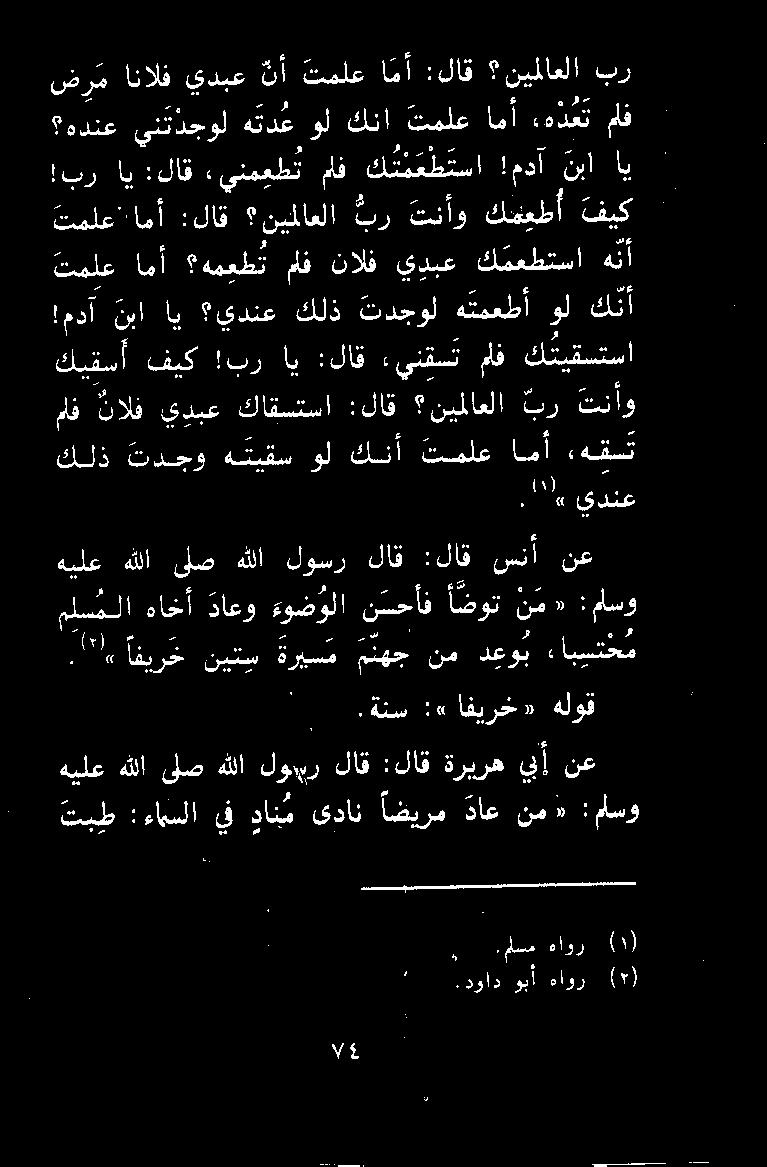 رب العالمين؟ قال: أمَا علمتَ أنّ عبدي فلانا مَرِض
فلم تَعُدْه، أما علمتَ انك لو عُدتَه لوجدْتَني عنده؟
يا ابنَ آدم! استَطْعَمْتُك فلم تُطعِمني، قال: يا رب!
كيفَ أُطعِمك وأنتَ ربُّ العالمين؟ قال: أما علمتَ
أنّه استطعمَك عبدي فلان فلم تُطعِمه؟ أما علِمتَ
أنّك لو أطعمتَه لوجدتَ ذلك عندي؟ يا ابنَ آدم!
استسقيتُك فلم تَسقِني، قال: يا رب! كيف أَسقِيك
وأنتَ ربّ العالمين؟ قال: استسقاك عبدِي فلانٌ فلم
تَسقِه، أما علمتَ أنك لو سقيتَه وجدتَ ذلك
عندي »(١).
عن أنس قال: قال رسول الله صلى الله عليه
وسلم: « مَنْ توضَّأ فأحسَن الوُضوءَ وعادَ أخاه المُسلِم
مُحْتسِبا، بُوعِد من جهنَّمَ مَسيرةَ سِتين خَريفاً »(٢).
قوله « خريفا »: سنة.
عن أبي هريرة قال: قال رسول الله صلى الله عليه
وسلم: « من عادَ مريضاً نادى مُنادٍ في السماء: طِبتَ
(١) رواه مسلم.
(٢) رواه أبو داود.
٧٤